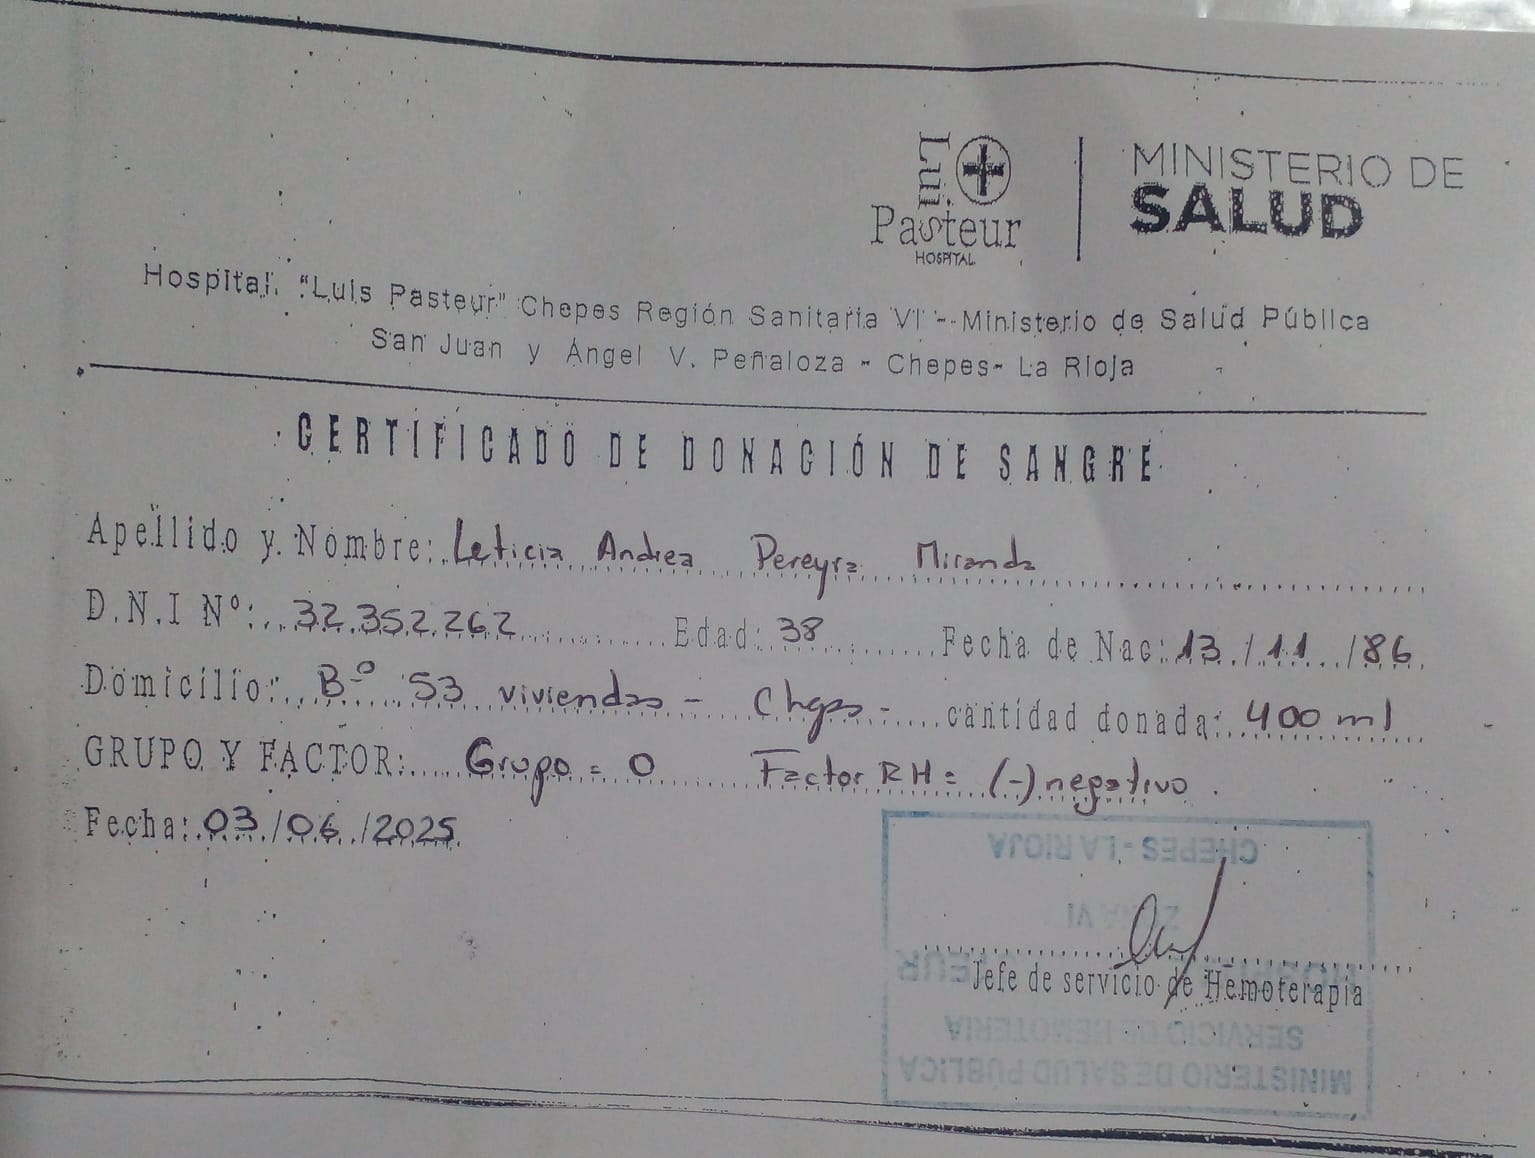 Luis
Pasteur
HOSPITAL
MINISTERIO DE
SALUD
Hospital "Luis Pasteur" Chepes Región Sanitaria VI - Ministerio de Salud Pública
San Juan y Ángel V. Peñaloza - Chepes - La Rioja
CERTIFICADO DE DONACIÓN DE SANGRE
Apellido y Nombre: Leticia Andrea Pereyra Miranda
D.N.I Nº: 32.352.262 Edad: 38 Fecha de Nac: 13/11/86
Domicilio: Bº 53 viviendas - cantidad donada: 400 ml
GRUPO Y FACTOR: Grupo = O Factor RH = (-) negativo.
Fecha: 03/06/2025
Jefe de servicio de Hemoterapia
CHEPES - LA RIOJA
VI
SERVICIO DE HEMOTERIA
MINISTERIO DE SALUD PÚBLICA